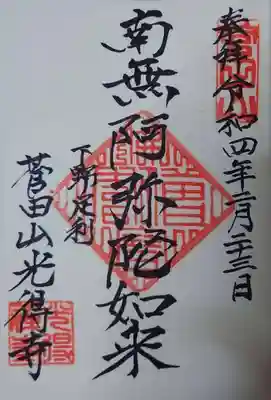 奉拝 令和四年二月二十三日
南無阿弥陀如来
下野足利
菅田山光得寺